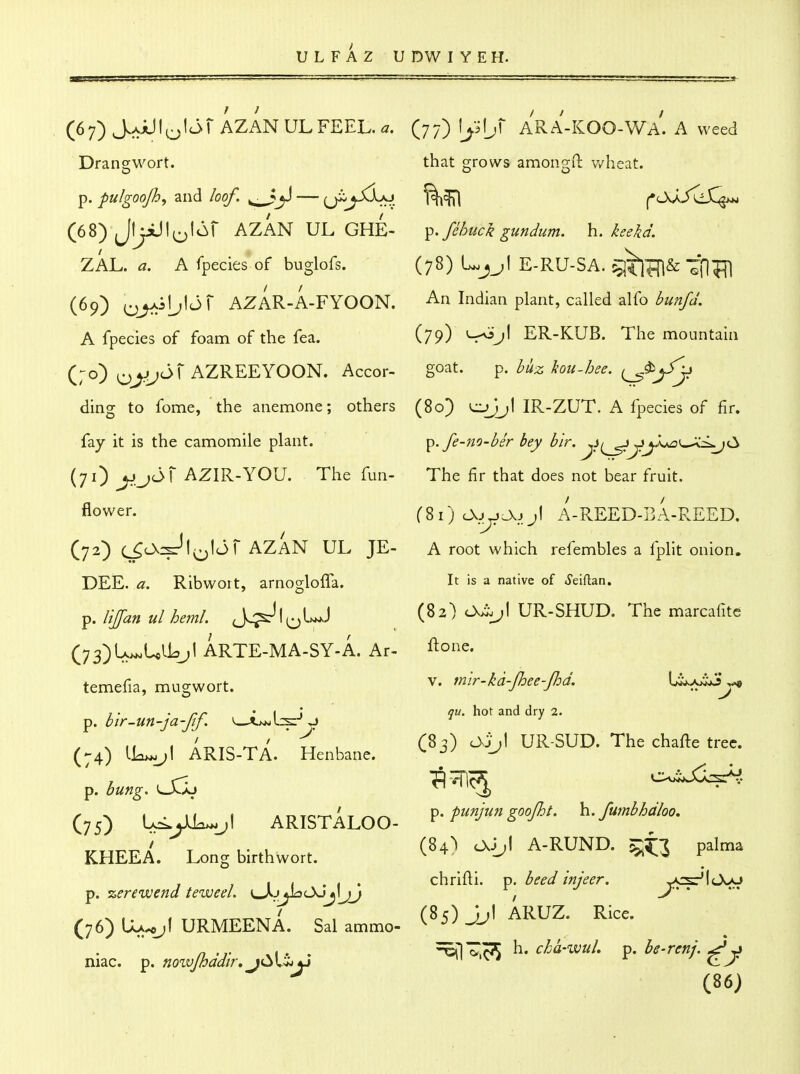 ULFÁZ UDWIYEH.
(67) آذان الفيل AZÁN UL FEEL. a.
Drangwort.
p. pulgoosh, and loof. لوف —
(68) آذان الغزال AZÁN UL GHE-
ZÁL. a. A species of buglofs.
(69) آذارافيون AZÁR-Á-FYOON.
A species of foam of the sea.
(70) آذريون AZREEYOON. Accor-
ding to some, the anemone; others
say it is the camomile plant.
(71) آذريو AZIR-YOU. The sun-
flower.
(72) آذان الجدي AZÁN UL JE-
DEE. a. Ribwort, arnoglossa.
p. lissan ul heml. لسان الحمل
(73) ارطاماسيا ARTE-MA-SY-Á. Ar-
temesia, mugwort.
p. bir-un-ja-sif. برنجاسف
(74) ارسطا ÁRIS-TÁ. Henbane.
p. bung. بنك
(75) ارسطالوخيا ARISTÁLOO-
KHEEÁ. Long birthwort.
p. zerewend teweel. زراوند طويل
(76) ارمينا URMEENÁ. Sal ammo-
niac. p. nowshádir. نوشادر
(77) آراقوا ÁRÁ-KOO-WÁ. A weed
that grows amongst wheat.
p. sehuck gundum. h. keeká.
(78) اروسا E-RU-SA. &
An Indian plant, called also bunsá.
(79) ER-KUB. The mountain
goat. p. búz kou-hee. بزكوهي
(80) ارزت IR-ZUT. A species of fir.
p. se-no-bér bey bir.
The fir that does not bear fruit.
(81) اريدبريد Á-REED-BÁ-REED.
A root which resembles a split onion.
It is a native of Seistan.
(82) ارشد UR-SHUD. The marcasite
stone.
v. mir-ká-shee-shá.
qu. hot and dry 2.
(83) ارثد UR-SUD. The chaste tree.
پنجنكشت
p. punjun goosht. h. fumbhàloo.
(84) ارند A-RUND. palma
christi. p. beed injeer. بيدانجير
(85) ارز ÁRUZ. Rice.
h. chá-wul. p. be-renj. برنج
(86)